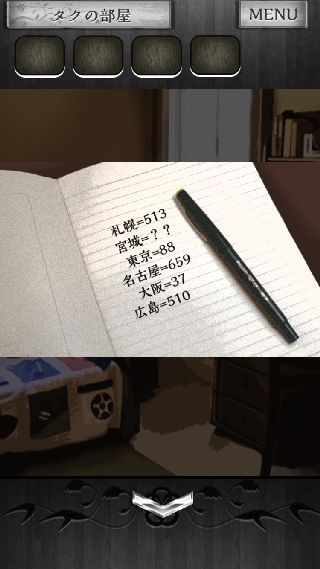 タクの部屋
MENU
札幌=513
宮城=？？
東京=88
名古屋=659
大阪=37
広島=510